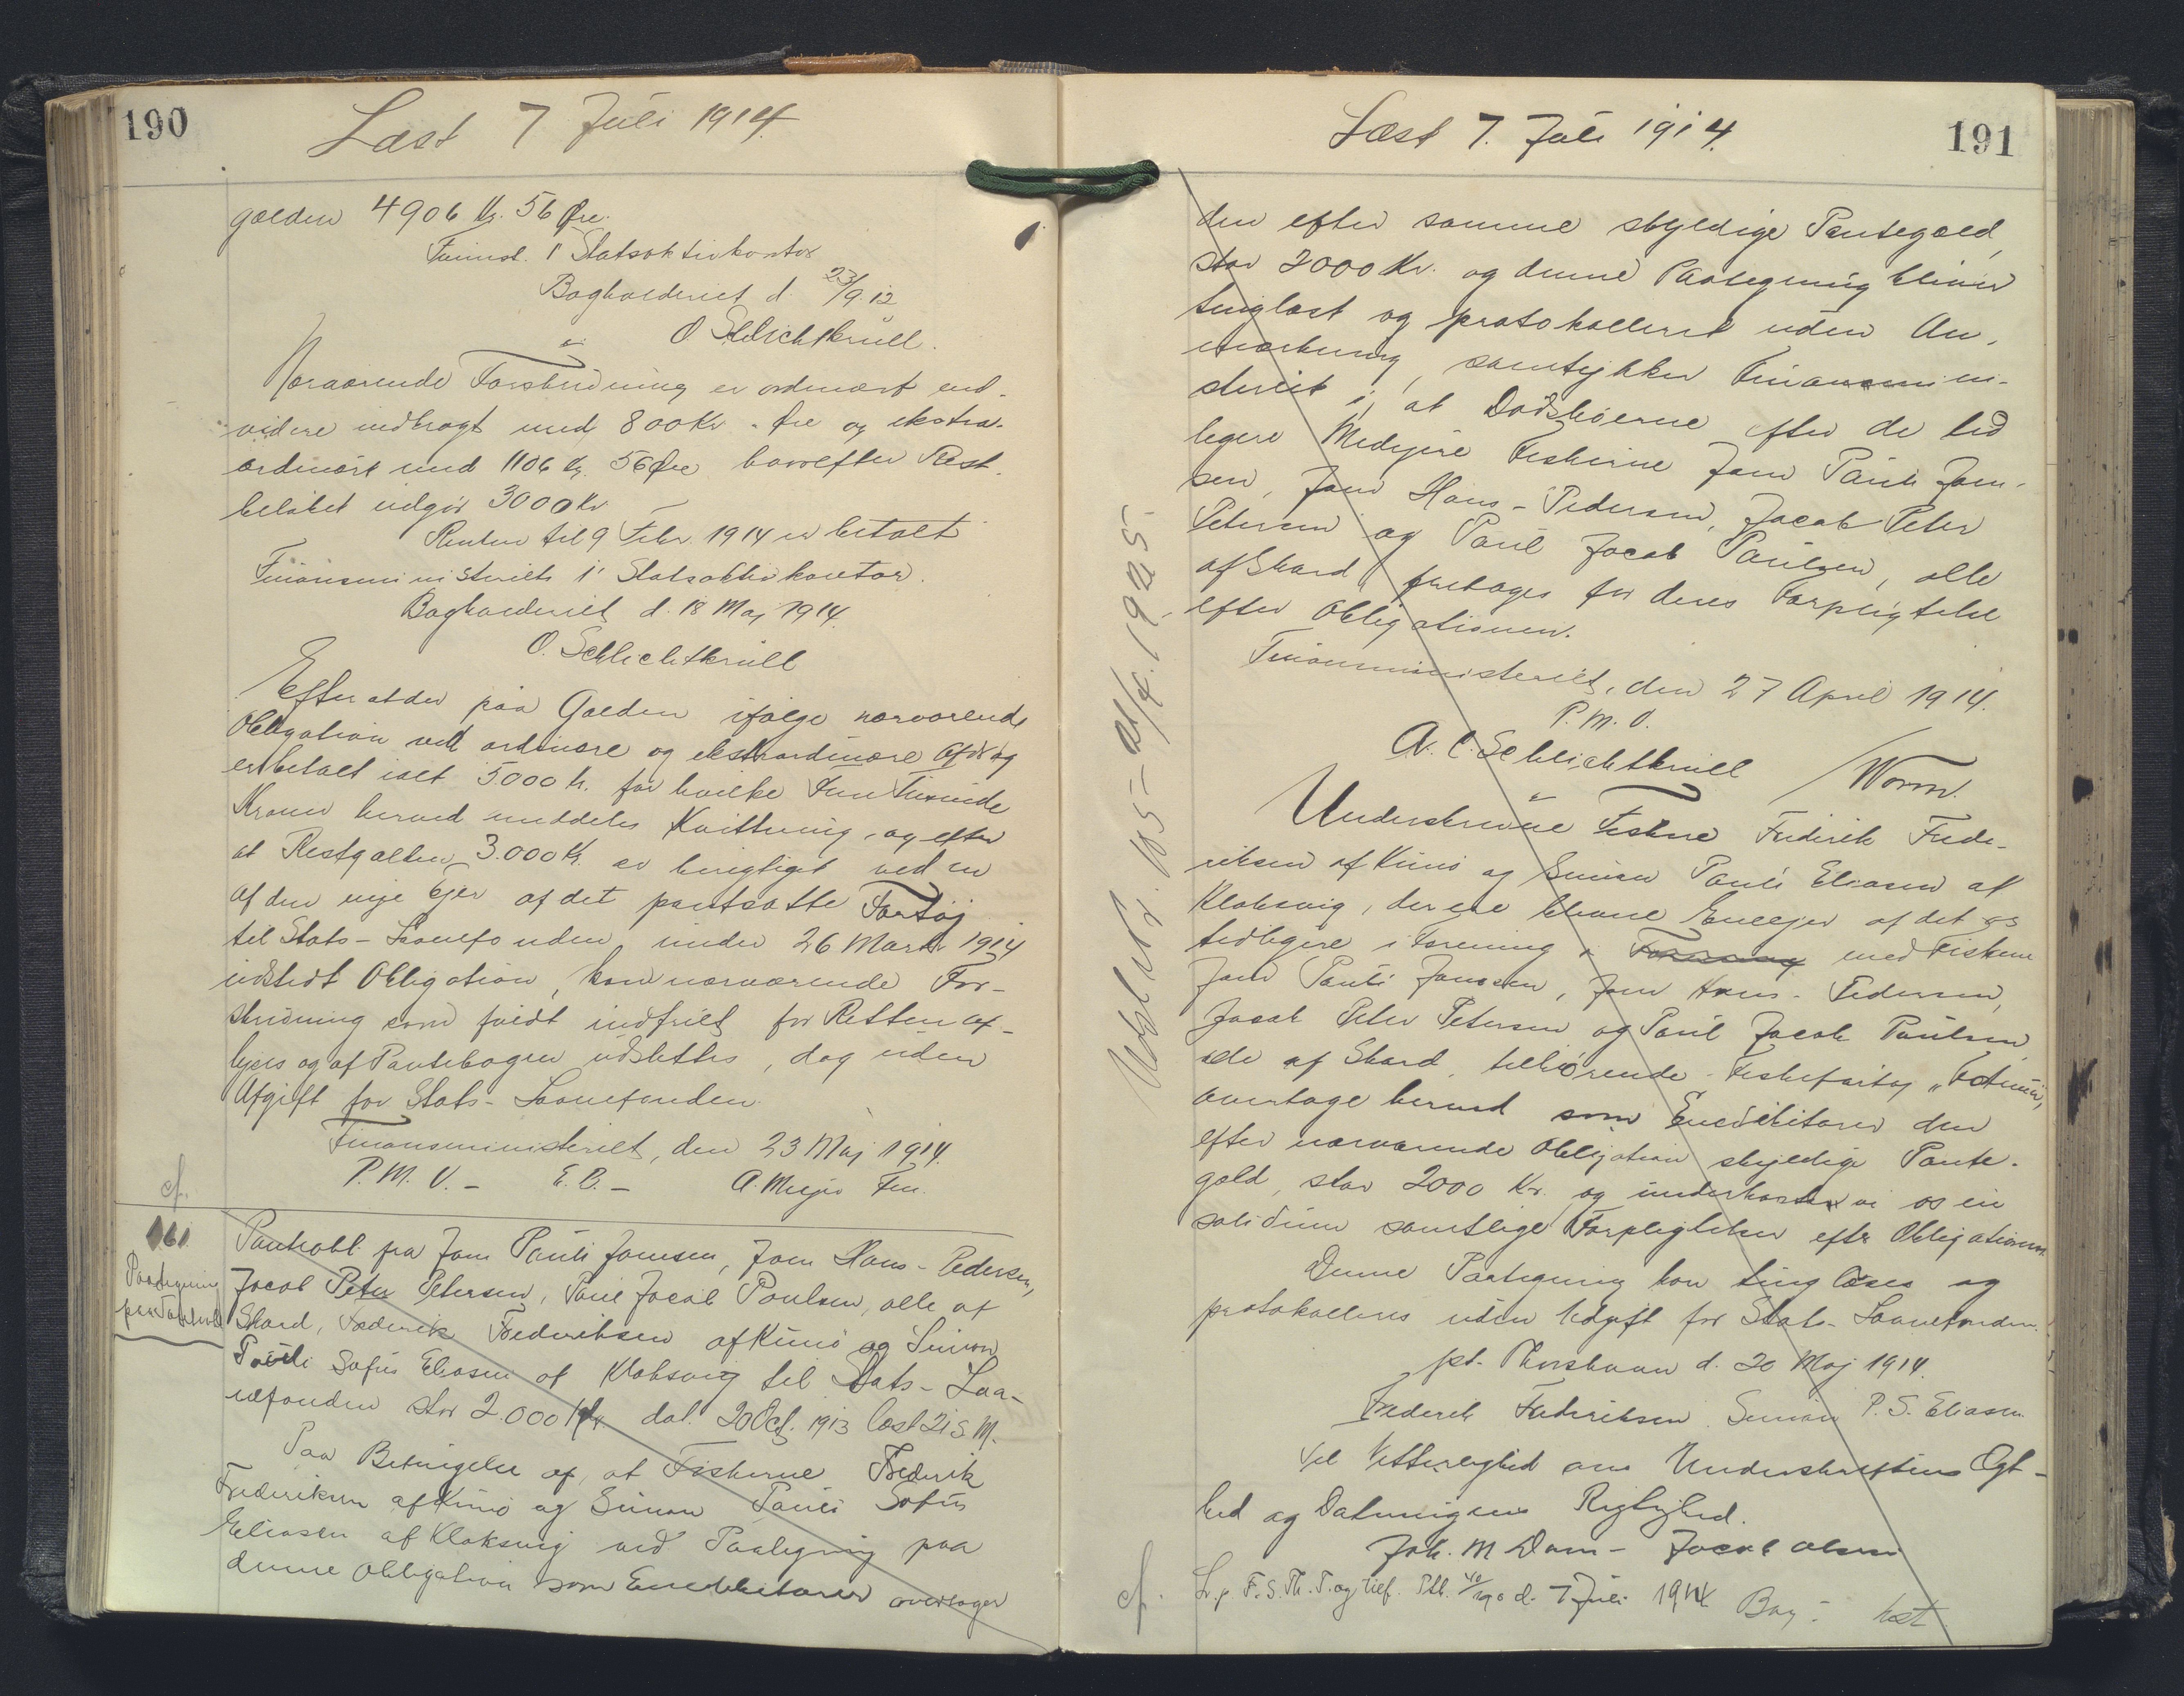 190
Læst 7 Juli 1914.
gælden 4906 Kr. 56 Øre.
Finmst. 1 Statsaktivkontor
Bogholderiet d. 23/9.12
O Schlichtkrull.
Nærværende Forskrivning er ordinært end-
videre nedbragt med 800 Kr. - Øre og ekstra-
ordinært med 1106 Kr. 56 Øre hvorefter Rest-
beløbet udgør 3000 Kr
Renten til 9 Febr. 1914 er betalt
Finansministeriets 1' Statsaktivkontor.
Bogholderiet d. 18 Maj 1914.
O. Schlichtkrull
Efter at der paa Gælden ifølge nærværende
Obligation ved ordinære og ekstraordinære Afdrag
er betalt ialt 5000 Kr. for hvilke Fem Tusinde
Kroner herved meddeles Kvittering, og efter
at Restgælden 3.000 Kr. er berigtiget ved en
af den nye Ejer af det pantsatte Fartøj
til Stats-Laanefonden under 26 Marts 1914
udstedt Obligation, kan nærværende For-
skrivning som fuldt indfriet for Retten af-
lyses og af Pantebogen udslettes, dog uden
Udgift for Stats-Laanefonden.
Finansministeriet, den 23 Maj 1914.
P. M. V. - E. B. - A. Mejer Fm.
cf.
161
Paategning
paa
Pantobl. fra Joen Pauli Joensen, Joen Hans-Pedersen,
Jacob Peter Petersen, Poul Jacob Poulsen, alle af
Skard, Frederik Frederiksen af Kunø og Simon
Pauli Sofus Eliasen af Klaksvig til Stats-Laa-
nefonden stor 2.000 Kr. dat. 20 Oct. 1913 læst 21 s. M.
Paa Betingelse af, at Fiskerne Frederik
Frederiksen af Kunø og Simon Pauli Sofus
Eliasen af Klaksvig ved Paategning paa
denne Obligation som Enedebitorer overtager
191
Læst 7. Juli 1914.
den efter samme skyldige Pantegæld,
stor 2000 Kr. og denne Paategning bliver
tinglæst og protokolleret uden An-
mærkning, samtykker Finansmini-
steriet i, at Dødsboerne efter de tid
ligere Medejere Fiskerne Joen Pauli Joen-
sen, Joen Hans-Pedersen, Jacob Peter
Petersen og Poul Jacob Poulsen, alle
af Skard, fritages for deres Forpligtelse
efter Obligationen.
Finansministeriet, den 27 April 1914.
P. M. V.
A. C. Schlichtkrull / Worm.
Underskrevne Fiskere Frederik Frede-
riksen af Kunø og Simon Pauli Eliasen af
Klaksvig, der ere blevne Eneejer af det os
tidligere i Forening med Fiskerne
Joen Pauli Joensen, Joen Hans-Pedersen,
Jacob Peter Petersen og Poul Jacob Poulsen,
alle af Skard, tilhørende Fiskefartøj
overtage herved som Enedebitorer den
efter nærværende Obligation skyldige Pante-
gæld, stor 2000 Kr. og underkaste vi os in
solidum samtlige Forpligtelser efter Obligationen
Denne Paategning kan tinglæses og
protokolleres uden Udgift for Stats-Laanefonden.
pt. Thorshavn d. 20 Maj 1914.
Frederik Frederiksen Simon P. S. Eliasen
Til Vitterlighed om Underskriftens Ægt-
hed og Dateringens Rigtighed.
Joh. M Dam - Jacob Olsen
L. p. F. S. Th. T. og tilf. Ptb. 40/190 d. 7 Juli 1914 Bay: Kst
cf.
Udsl. Nr. 105 - 21/4. 1925.